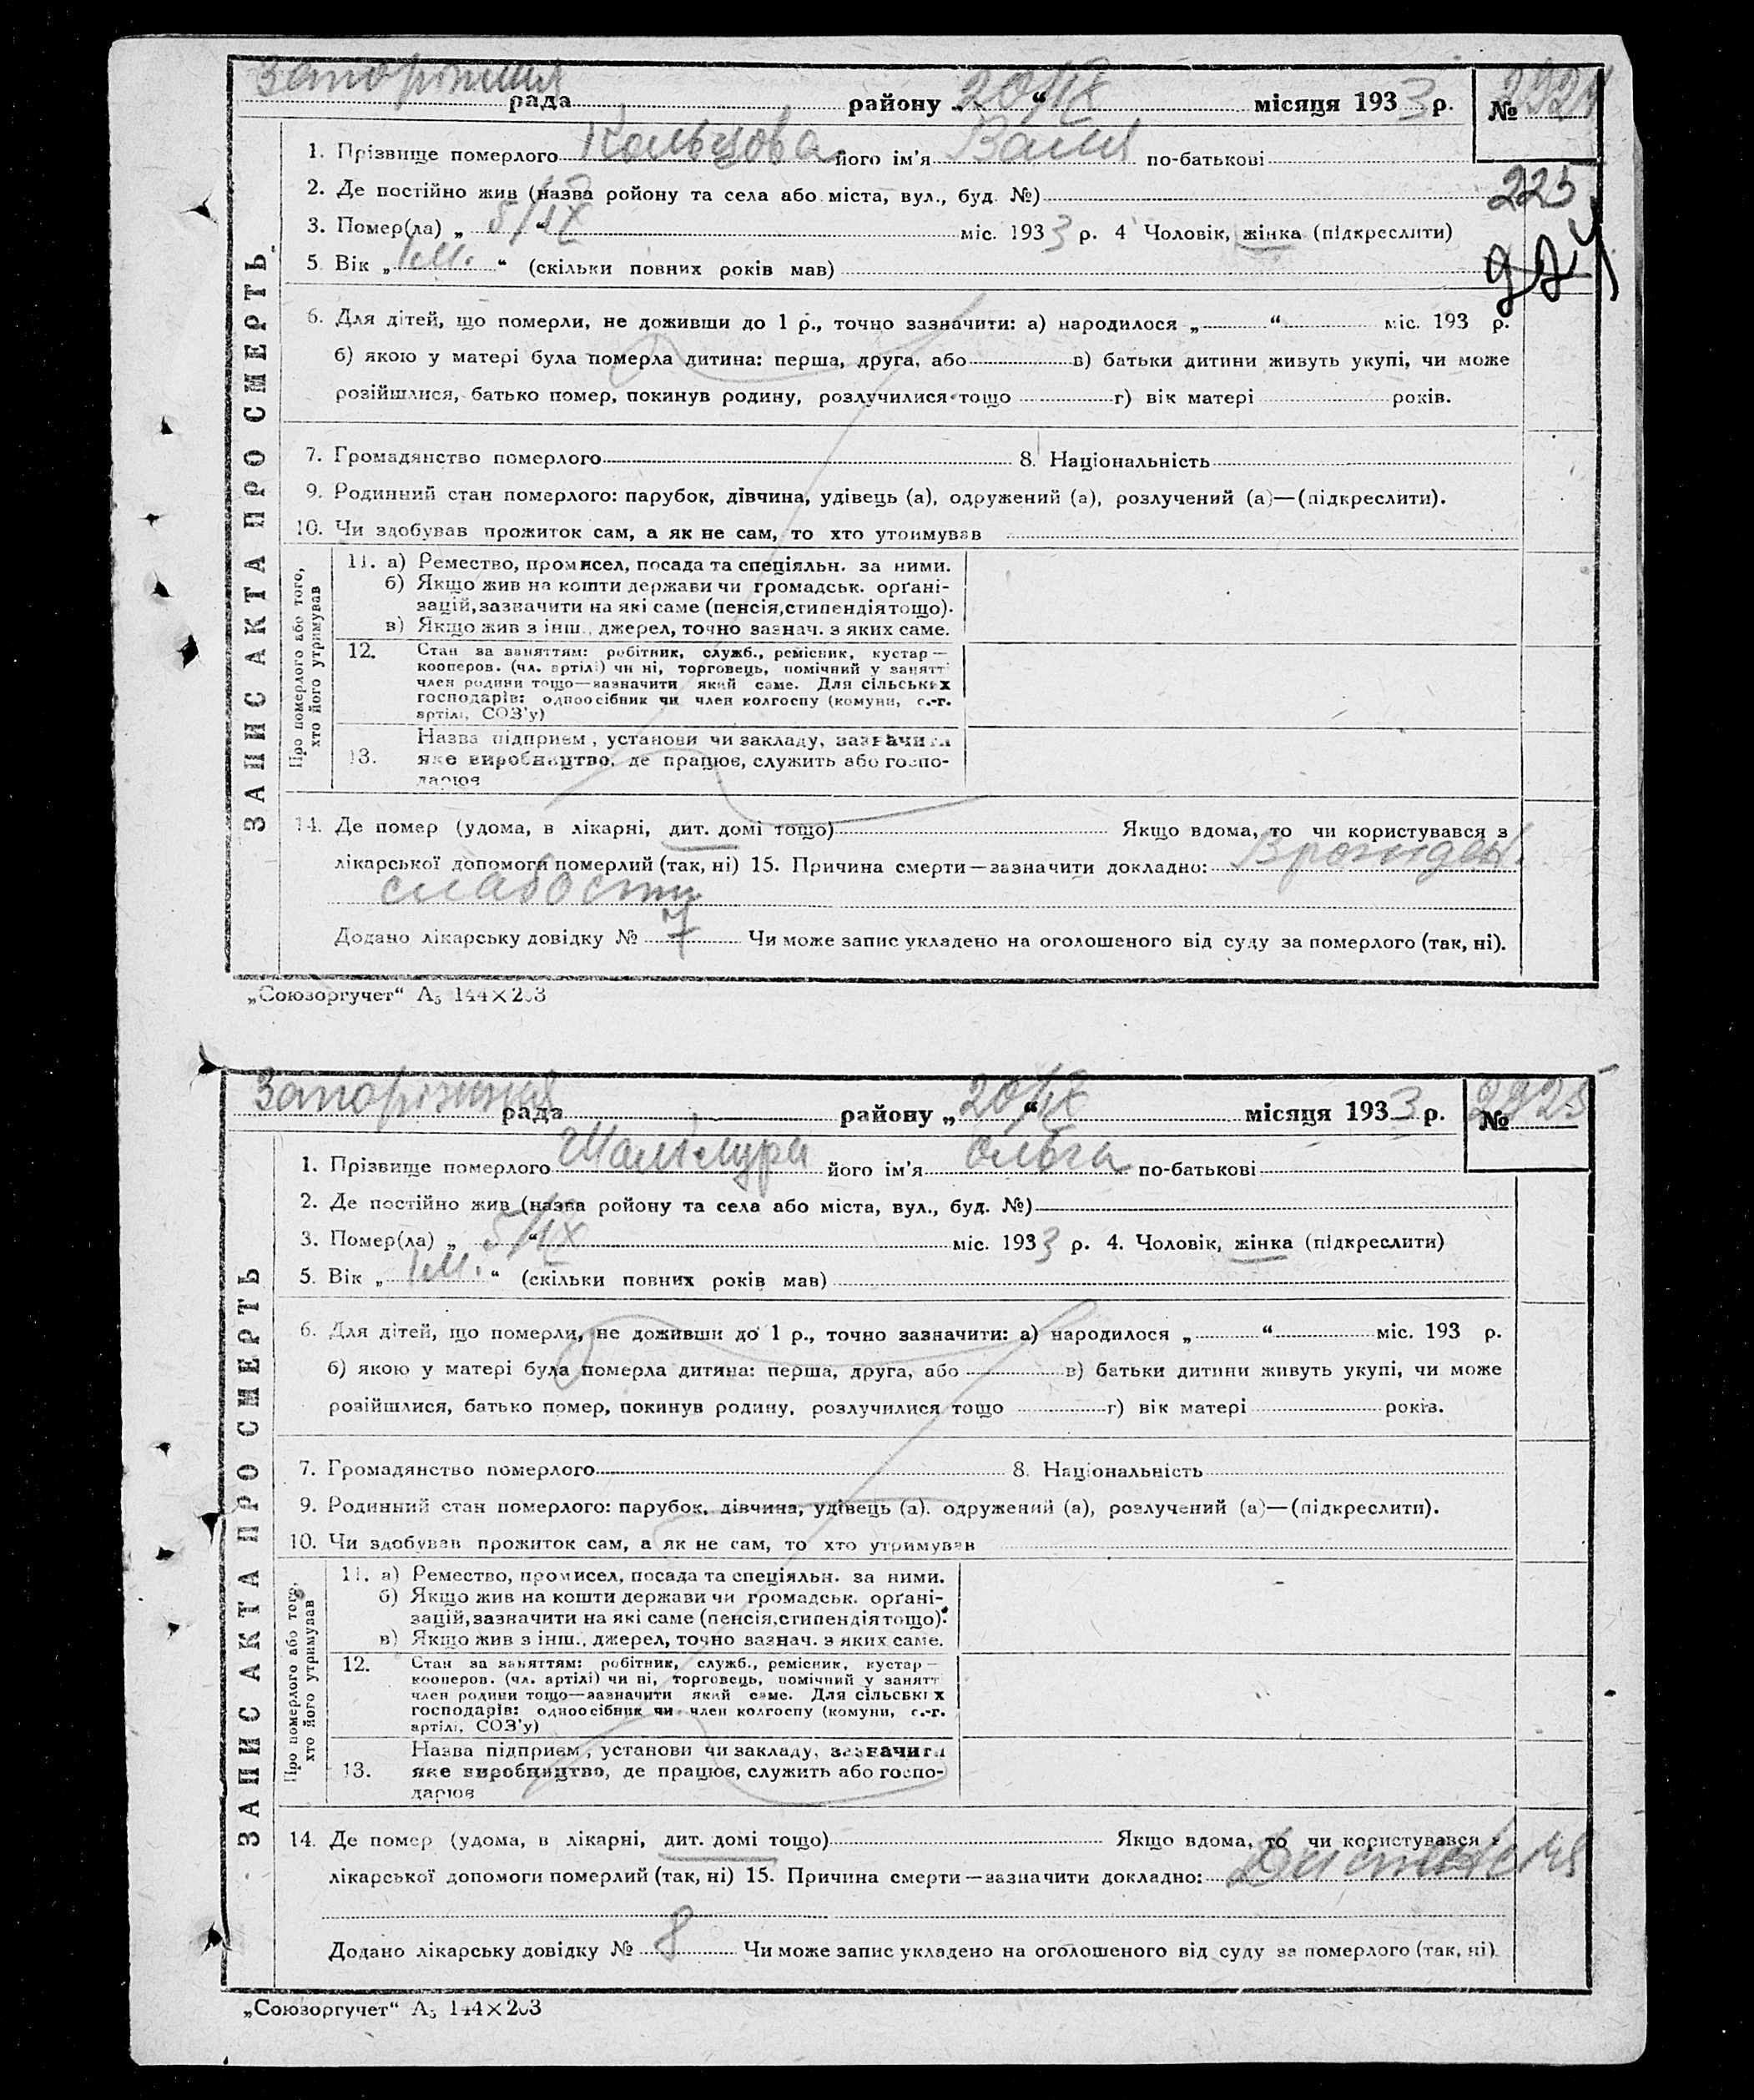 Запоріжжя рада району „ 20/IX “ місяця 1933 р. № 2924
1. Прізвище померлого Кольцова його ім'я Валя по-батькові
225
2. Де постійно жив (назва ройону та села або міста, вул., буд. №)
3. Помер(ла) „ 5/IX “ міс. 1933 р. 4 Чоловік, жінка (підкреслити)
5 Вік „ 1 м. “ (скільки повних років мав)
6. Для дітей, що померли, не доживши до 1 р., точно зазначити: а) народилося „ “ міс. 193 р.
б) якою у матері була померла дитина: перша, друга, або в) батьки дитини живуть укупі, чи може
розійшлися, батько помер, покинув родину, розлучилися тощо г) вік матері років.
7. Громадянство померлого 8. Національність
9. Родинний стан померлого: парубок, дівчина, удівець (а), одружений (а), розлучений (а)—(підкреслити).
10. Чи здобував прожиток сам, а як не сам, то хто утримував
ЗАПИС АКТА ПРО СМЕРТЬ
Про померлого або того, хто його утримував
11. а) Ремество, промисел, посада та спеціяльн. за ними.
б) Якщо жив на кошти держави чи громадськ. орґані-
зацій, зазначити на які саме (пенсія, стипендія тощо).
в) Якщо жив з інш., джерел, точно зазнач. з яких саме.
12. Стан за заняттям: робітник, служб., ремісник, кустар—
кооперов. (чл. артілі) чи ні, торговець, помічний у занятт
член родини тощо—зазначити який саме. Для сільських
господарів: одноосібник чи член колгоспу (комуни, с.-г.
артілі, СОЗ'у)
Назва підприєм, установи чи закладу, зазначити
13. яке виробництво, де працює, служить або госпо-
дарює
14. Де помер (удома, в лікарні, дит. домі тощо) Якщо вдома, то чи користувався з
лікарської допомоги померлий (так, ні) 15. Причина смерти—зазначити докладно: Врожден.
слабость
Додано лікарську довідку № 7 Чи може запис укладено на оголошеного від суду за померлого (так, ні).
„Союзоргучет“ А5 144×203
Запоріжжя рада району „ 20/IX “ місяця 1933 р. № 2925
1. Прізвище померлого його ім'я Ольга по-батькові
2. Де постійно жив (назва ройону та села або міста, вул., буд. №)
3. Помер(ла) „ 5/IX “ міс. 1933 р. 4. Чоловік, жінка (підкреслити)
5. Вік „ 1 м. “ (скільки повних років мав)
6. Для дітей, що померли, не доживши до 1 р., точно зазначити: а) народилося „ “ міс. 193 р.
б) якою у матері була померла дитина: перша, друга, або в) батьки дитини живуть укупі, чи може
розійшлися, батько помер, покинув родину, розлучилися тощо г) вік матері років.
7. Громадянство померлого 8. Національність
9. Родинний стан померлого: парубок, дівчина, удівець (а), одружений (а), розлучений (а)—(підкреслити).
10. Чи здобував прожиток сам, а як не сам, то хто утримував
ЗАПИС АКТА ПРО СМЕРТЬ
Про померлого або того, хто його утримував
11. а) Ремество, промисел, посада та спеціяльн. за ними.
б) Якщо жив на кошти держави чи громадськ. орґані-
зацій, зазначити на які саме (пенсія, стипендія тощо).
в) Якщо жив з інш., джерел, точно зазнач. з яких саме.
12. Стан за заняттям: робітник, служб., ремісник, кустар—
кооперов. (чл. артілі) чи ні, торговець, помічний у занятт
член родини тощо—зазначити який саме. Для сільських
господарів: одноосібник чи член колгоспу (комуни, с.-г.
артілі, СОЗ'у)
Назва підприєм, установи чи закладу, зазначити
13. яке виробництво, де працює, служить або госпо-
дарює
14. Де помер (удома, в лікарні, дит. домі тощо) Якщо вдома, то чи користувався з
лікарської допомоги померлий (так, ні) 15. Причина смерти—зазначити докладно:
Додано лікарську довідку № 8 Чи може запис укладено на оголошеного від суду за померлого (так, ні)
„Союзоргучет“ А5 144×203